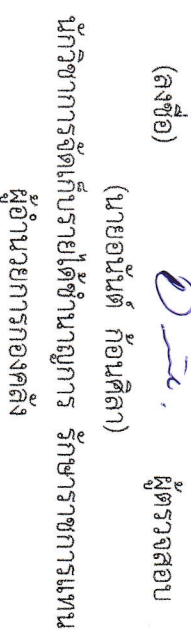 (ลงชื่อ) ผู้ตรวจสอบ
(นายอนันต์ ก้อนศิลา)
นักวิชาการจัดเก็บรายได้ชำนาญการ รักษาราชการแทน
ผู้อำนวยการกองคลัง